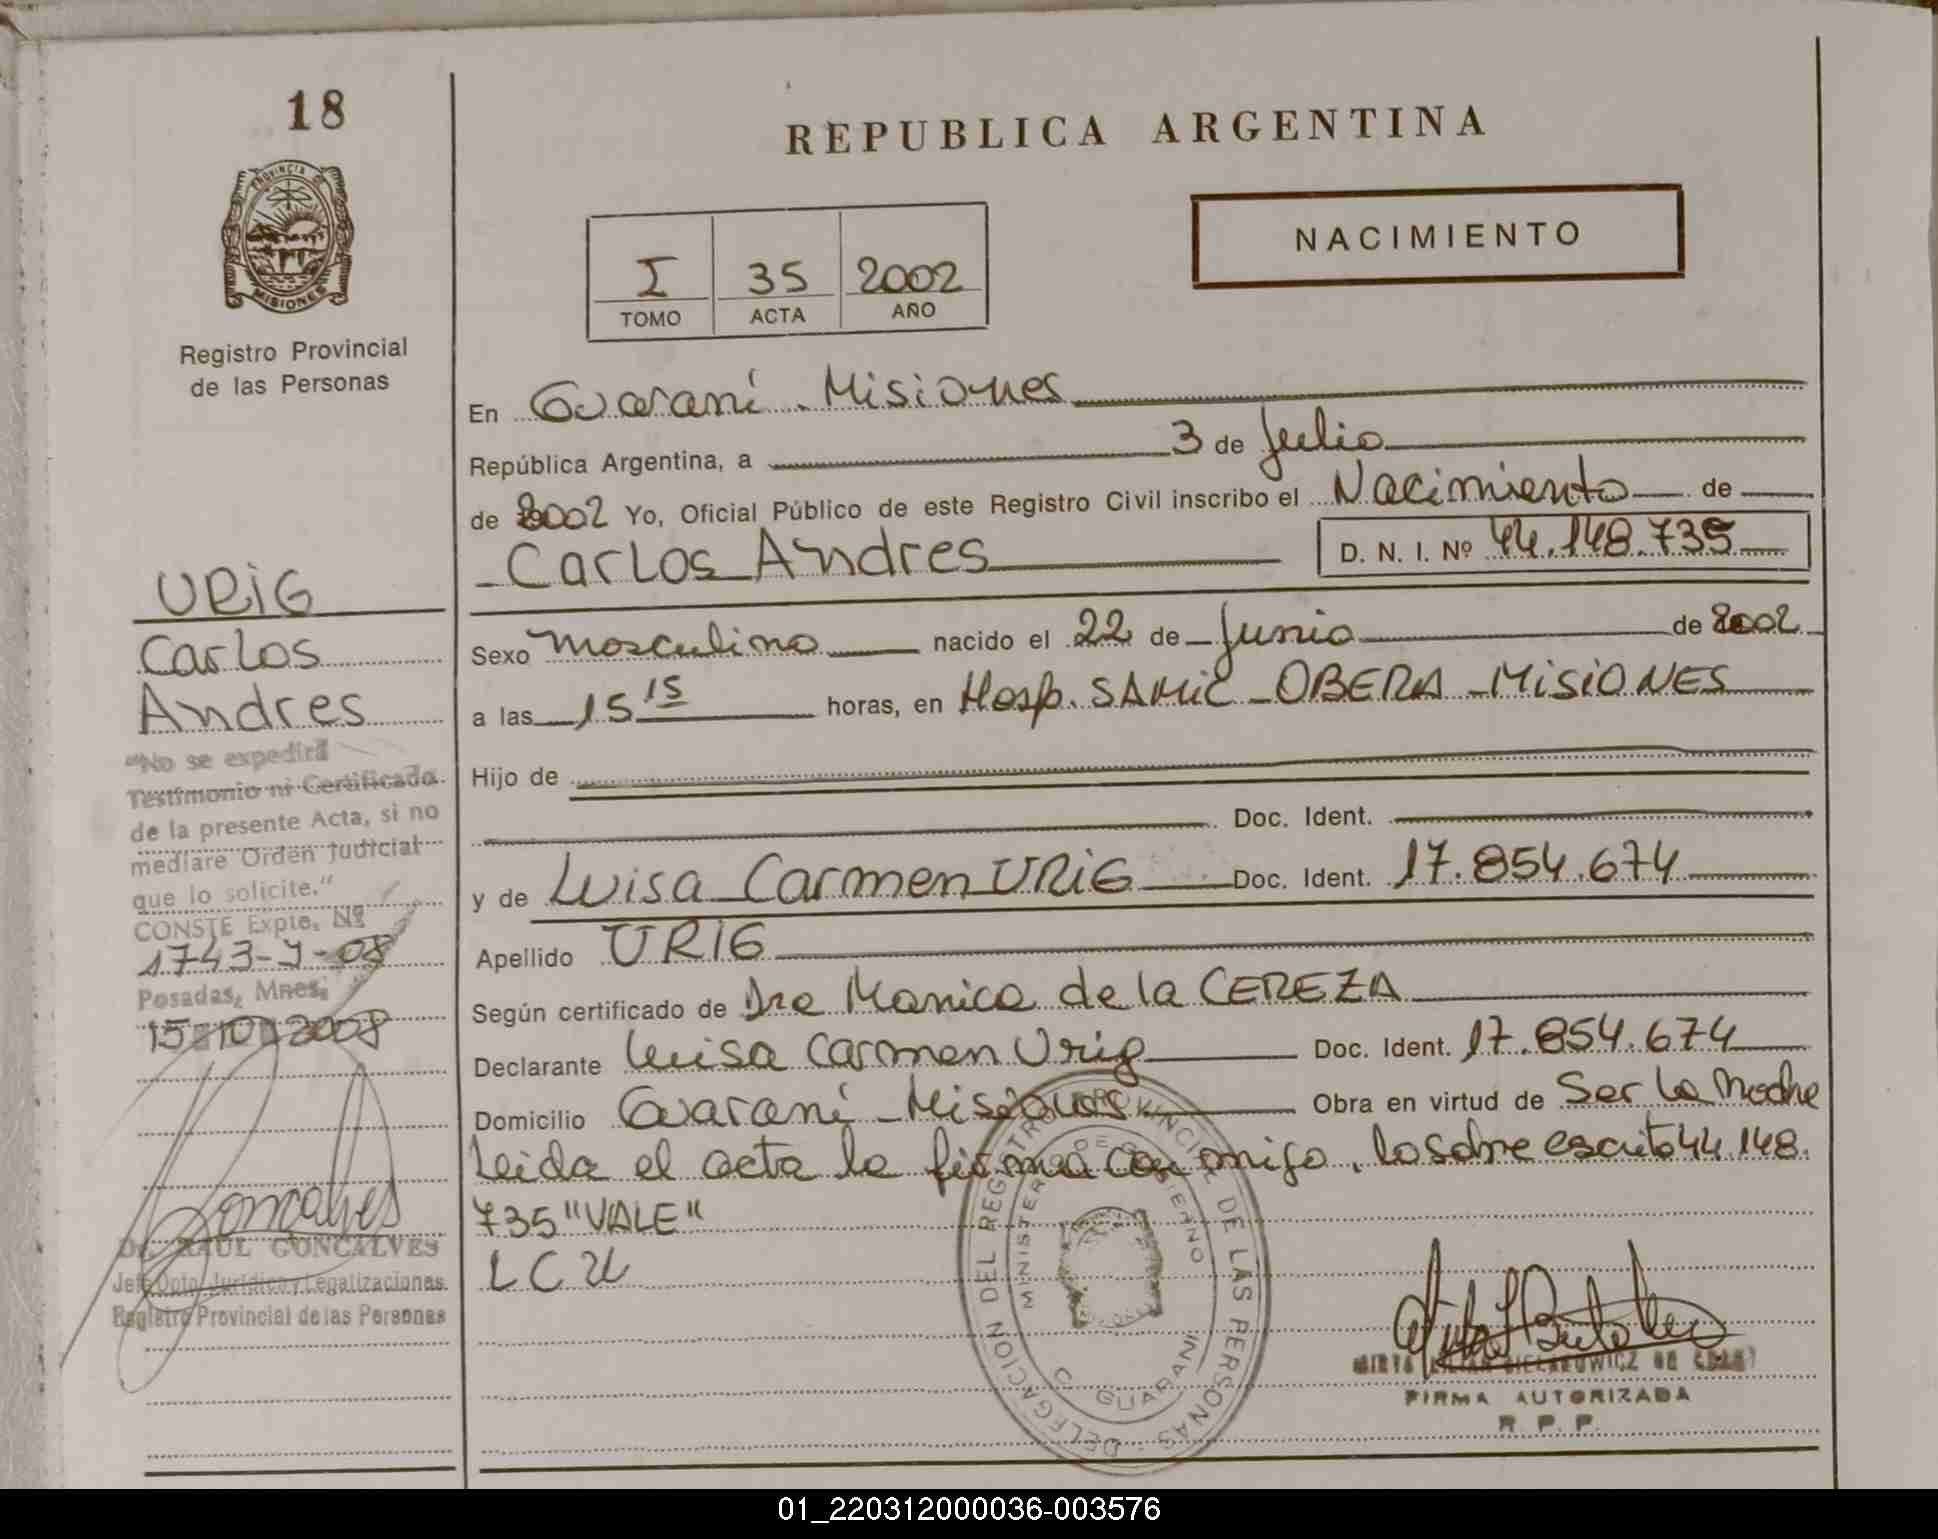 18
PROVINCIA DE
MISIONES
Registro Provincial
de las Personas
URIG
Carlos
Andres
"No se expedirá
Testimonio ni Certificado
de la presente Acta, si no
mediare Orden Judicial
que lo solicite."
CONSTE Expte. Nº
1743-J-08
Posadas, Mnes.
15 10 2008
Goncalves
Dr. RAUL GONCALVES
Jefe Dpto. Jurídico y Legalizaciones
Registro Provincial de las Personas
REPUBLICA ARGENTINA
NACIMIENTO
I 35 2002
TOMO ACTA AÑO
En Guaraní - Misiones
República Argentina, a 3 de Julio
de 2002 Yo, Oficial Público de este Registro Civil inscribo el Nacimiento de
Carlos Andres D. N. I. Nº 44.148.735
Sexo masculino nacido el 22 de Junio de 2002
a las 15 15 horas, en Hosp. SAMIC - OBERA - MISIONES
Hijo de
Doc. Ident.
y de Luisa Carmen URIG Doc. Ident. 17.854.674
Apellido URIG
Según certificado de Dra Monica de la CEREZA
Declarante Luisa Carmen Urig Doc. Ident. 17.854.674
Domicilio Guaraní - Misiones Obra en virtud de Ser la Madre
Leida el acta la firma conmigo. lo sobre escrito 44.148.
735 "VALE"
L C U
DELEGACION DEL REGISTRO PROVINCIAL DE LAS PERSONAS
MINISTERIO DE GOBIERNO
GUARANI
FIRMA AUTORIZADA
R. P. P.
01_220312000036-003576